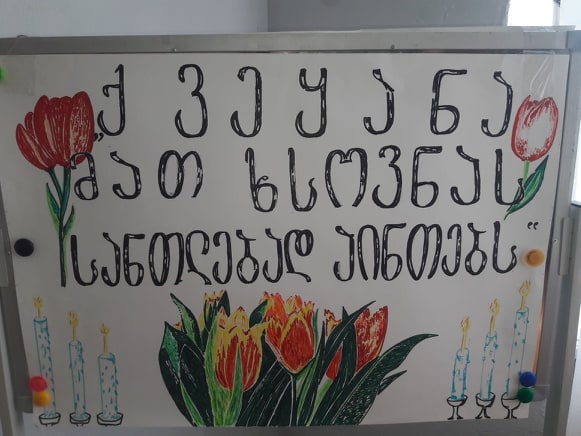 „ქვეყანა
მათ ხსოვნას
სანთლებად აინთებს“